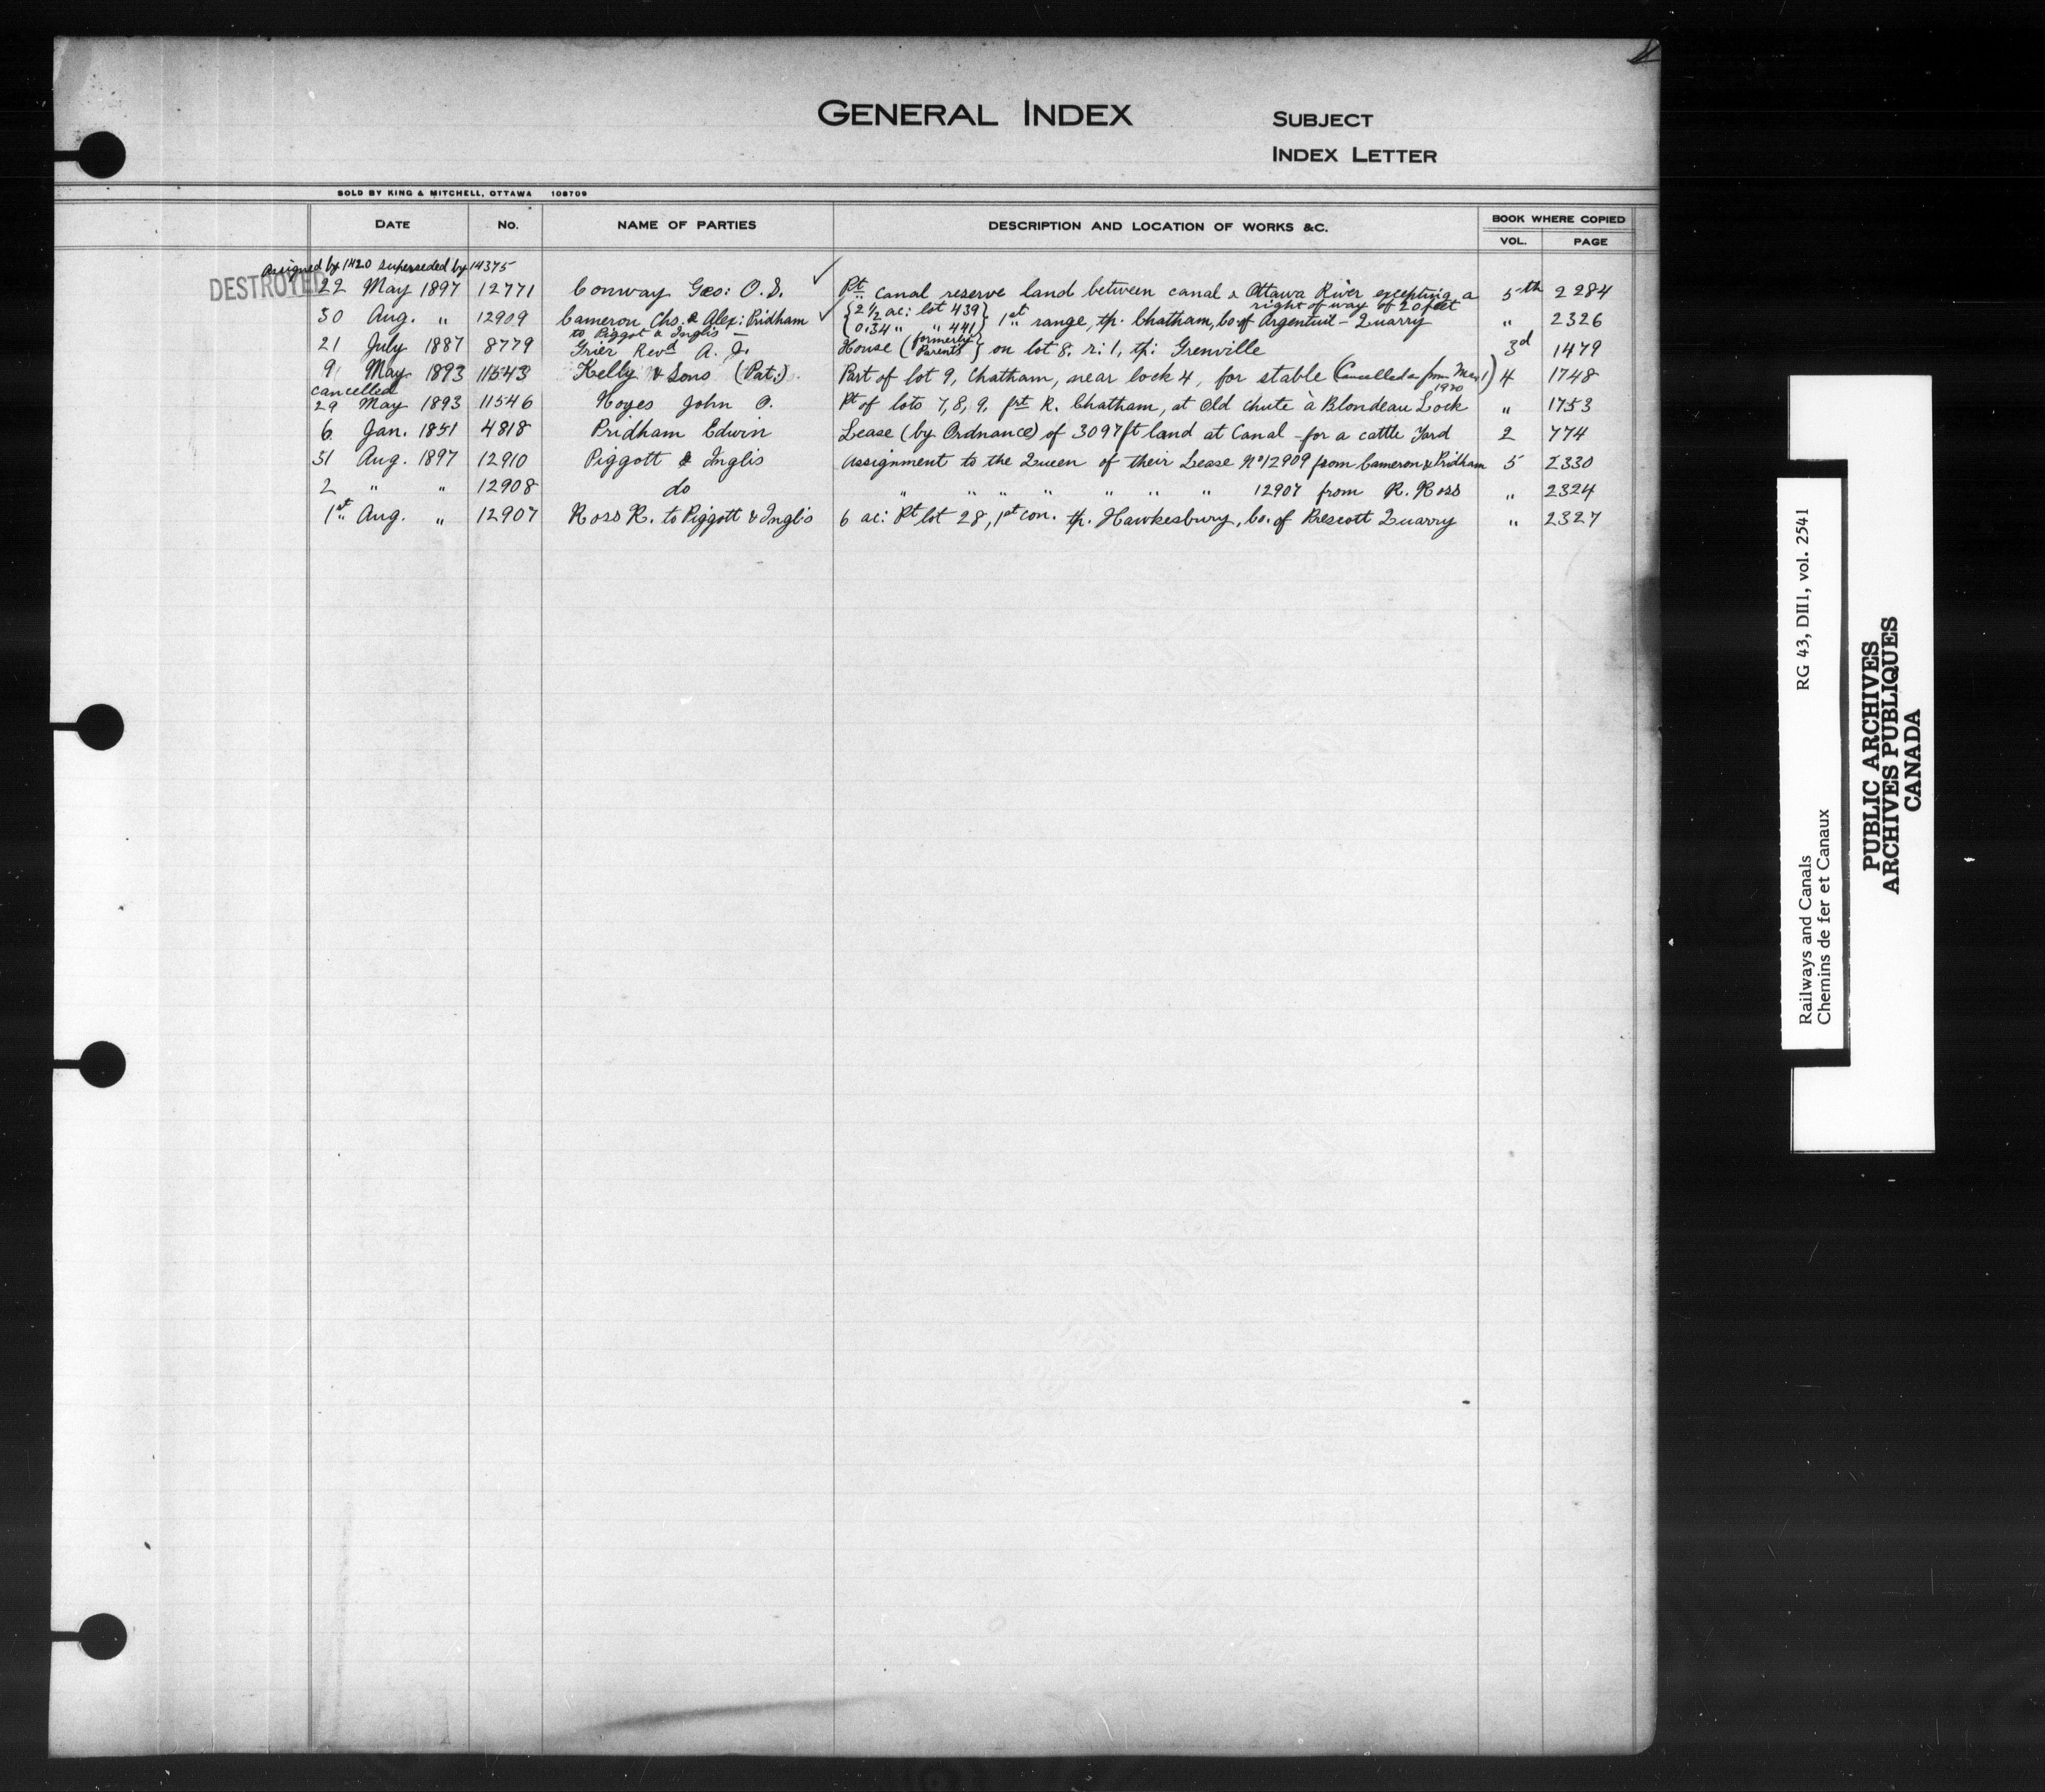 GENERAL INDEX
SUBJECT
INDEX LETTER
SOLD BY KING & MITCHELL, OTTAWA 108709
DATE No. NAME OF PARTIES DESCRIPTION AND LOCATION OF WORKS &C. BOOK WHERE COPIED
VOL. PAGE
Assigned by 1420 superseded by 14375
DESTROYED
22 May 1897 12771 Conway Geo: O.S. ✓ Pt canal reserve land between canal & Ottawa River excepting a 5th 2284
right of way of 20 feet
30 Aug. " 12909 Cameron, Chs. & Alex: Pridham ✓ {2 1/2 ac: lot 439} 1st range, tp. Chatham, Co. of Argenteuil - Quarry " 2326
to Piggot & Inglis — {0.34 " " 441}
21 July 1887 8779 Grier Revd A. J. House (formerly Parent's) on lot 8. r: 1, tp: Grenville 3d 1479
9 May 1893 11543 Kelly & Sons (Pat:) Part of lot 9, Chatham, near lock 4, for stable (Cancelled a from May 1 1920) 4 1748
cancelled
29 May 1893 11546 Noyes John O. Pt of lots 7, 8, 9, frt R. Chatham, at Old Chute à Blondeau Lock " 1753
6 Jan. 1851 4818 Pridham Edwin Lease (by Ordnance) of 3097 ft land at Canal - for a cattle Yard 2 774
31 Aug. 1897 12910 Piggott & Inglis Assignment to the Queen of their Lease No 12909 from Cameron & Pridham 5 2330
2 " " 12908 do " " " " " " " 12907 from R. Ross " 2324
1st Aug. " 12907 Ross R. to Piggott & Inglis 6 ac: Pt lot 28, 1st con. tp. Hawkesbury, Co. of Prescott Quarry " 2327
RG 43, DII1, vol. 2541
Railways and Canals
Chemins de fer et Canaux
PUBLIC ARCHIVES
ARCHIVES PUBLIQUES
CANADA